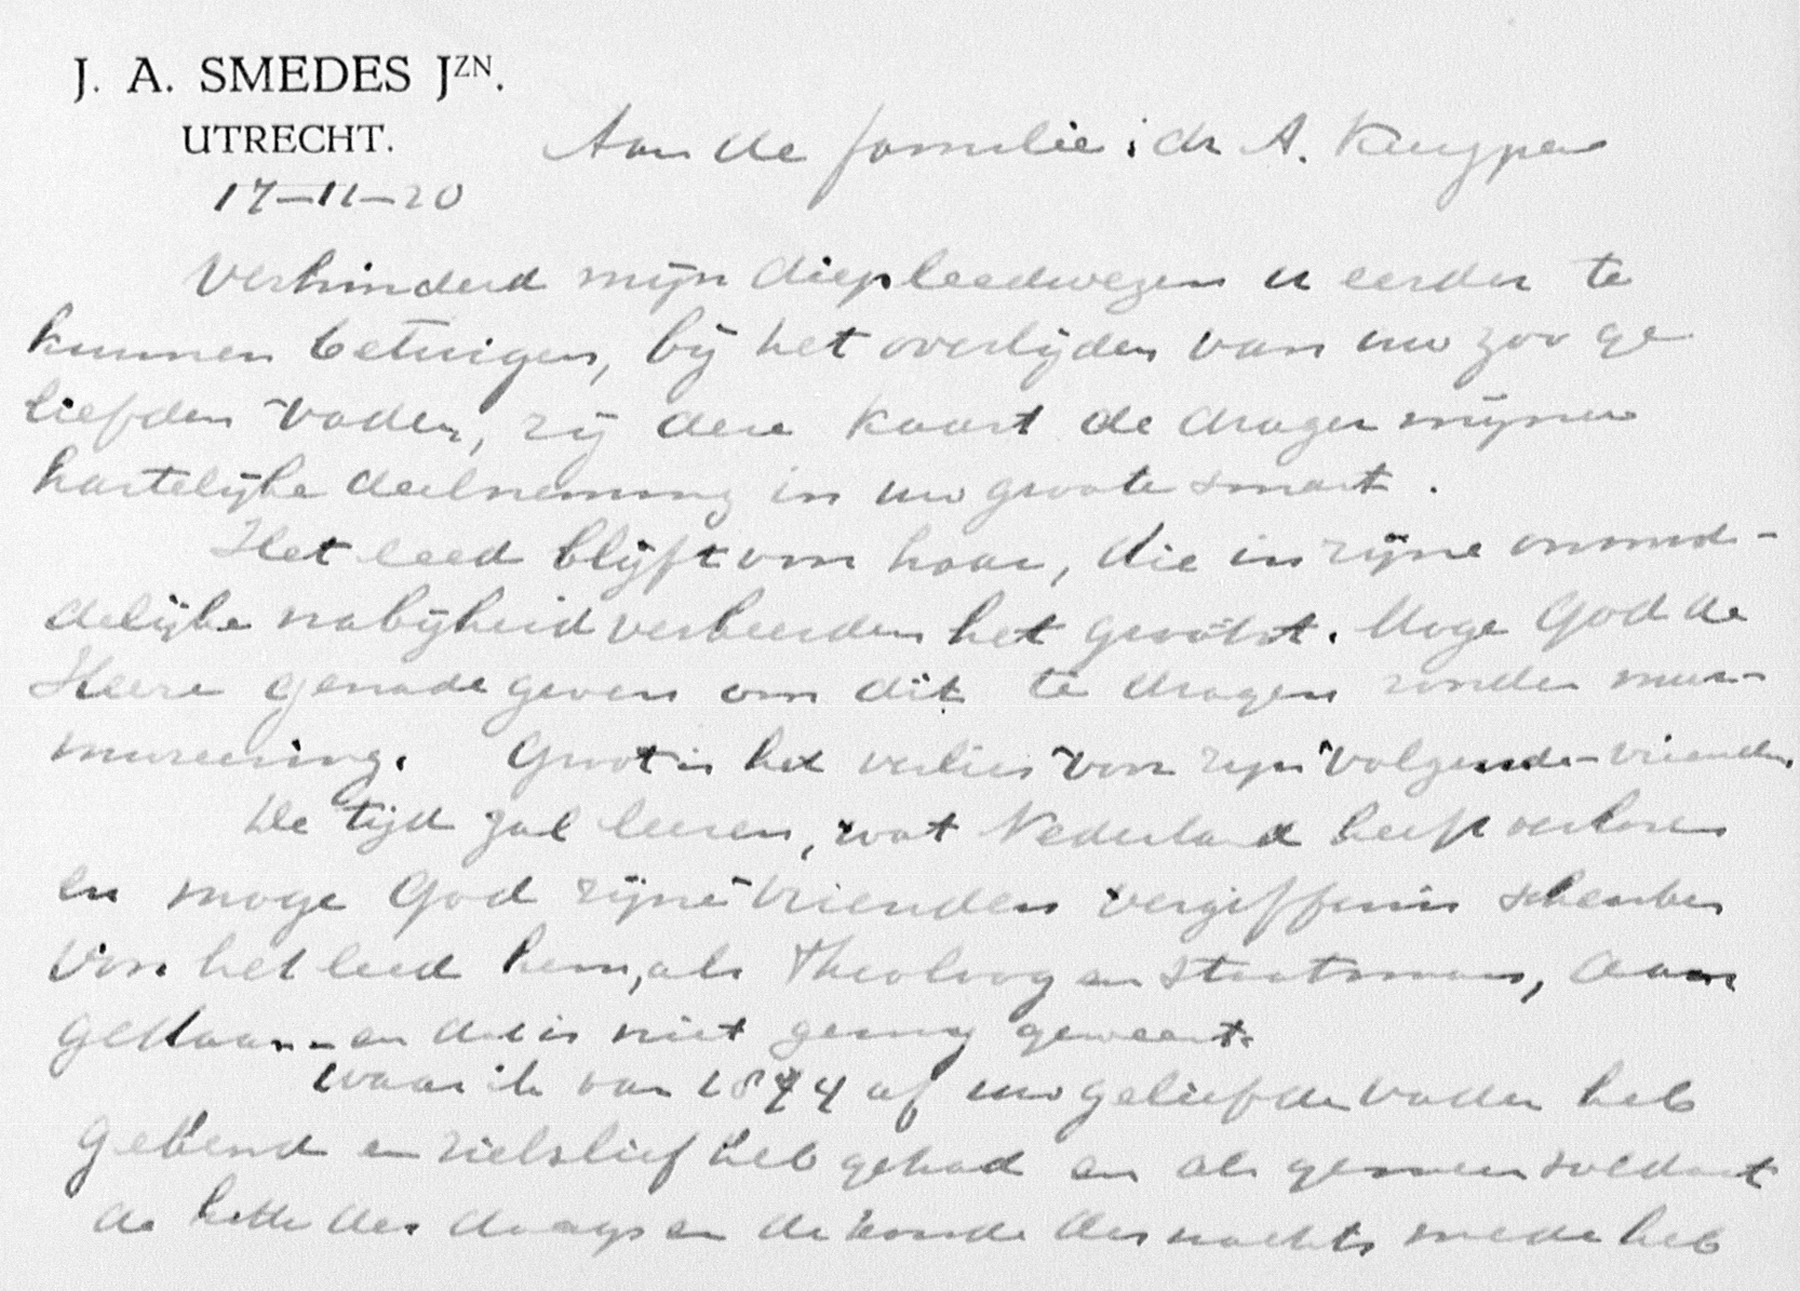 J. A. SMEDES JZN.
UTRECHT.
17-11-20
Aan de familie: dr A. Kuyper
Verhinderd mijn diepleedwezen u eerder te
kunnen betuigen, bij het overlijden van uw zoo ge
liefden Vader, zij deze kaart de drager mijner
hartelijke deelneming in uw groote smart.
Het leed blijft om haar, die in zijne onmid-
delijke nabijheid verkeerden het grootst. Moge God de
Heere genade geven om dit te dragen zonder mur-
mureering. Groot is het verlies van zijn volgende-vrienden.
De tijd zal leeren, wat Nederland heeft verloren
en moge God zijne vrienden vergiffenis schenken
Van het leed hem, als Theoloog en Staatsman, aan
gedaan - en dat is niet genoeg geweest.
Waar ik van 1874 af uw geliefde Vader heb
gekend en zielslief heb gehad en als gemeen soldaat
de hitte des daags en de koude des nachts mede heb